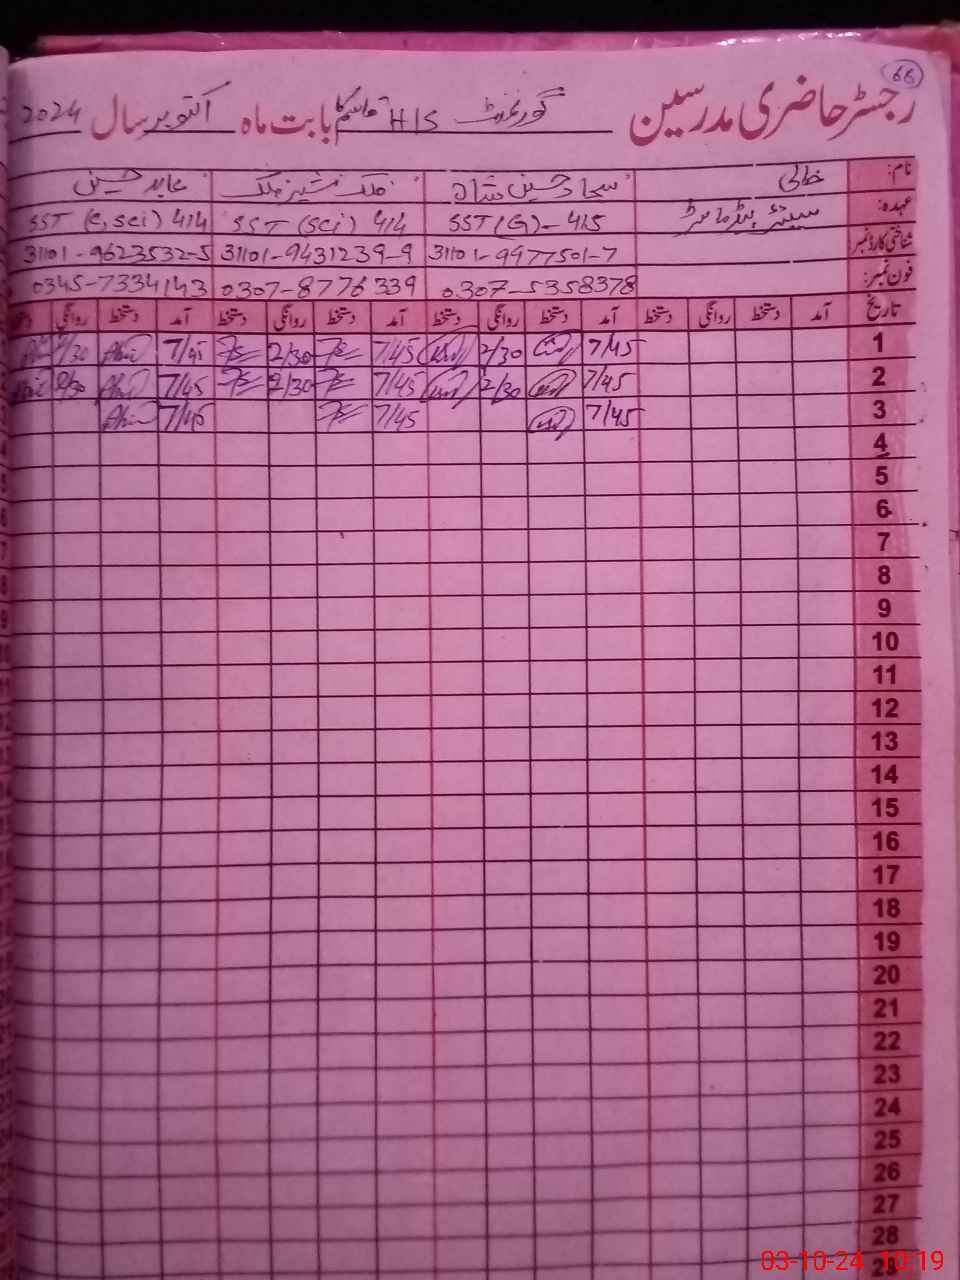 66
رجسٹر حاضری مدرسین گورنمنٹ H/S قاسم کا بابت ماہ اکتوبر سال 2024
نام: خالی سجاد حسین شاہ ملک عابد حسین
عہدہ: سینئر ہیڈ ماسٹر SST (G)- 415 SST (Sci) 414 SST (C, Sci) 414
شناختی کارڈ نمبر 31101-9977501-7 31101-9431239-9 31101-9623532-5
فون نمبر: 0307-5358378 0307-8776339 0345-7334143
تاریخ آمد دستخط روانگی دستخط آمد دستخط روانگی دستخط آمد دستخط روانگی دستخط آمد دستخط روانگی
1 7/45 2/30 7/45 2/30 7/45 2/30
2 7/45 2/30 7/45 2/30 7/45 2/30
3 7/45 7/45 7/45
4
5
6
7
8
9
10
11
12
13
14
15
16
17
18
19
20
21
22
23
24
25
26
27
28
29
03-10-24 10:19